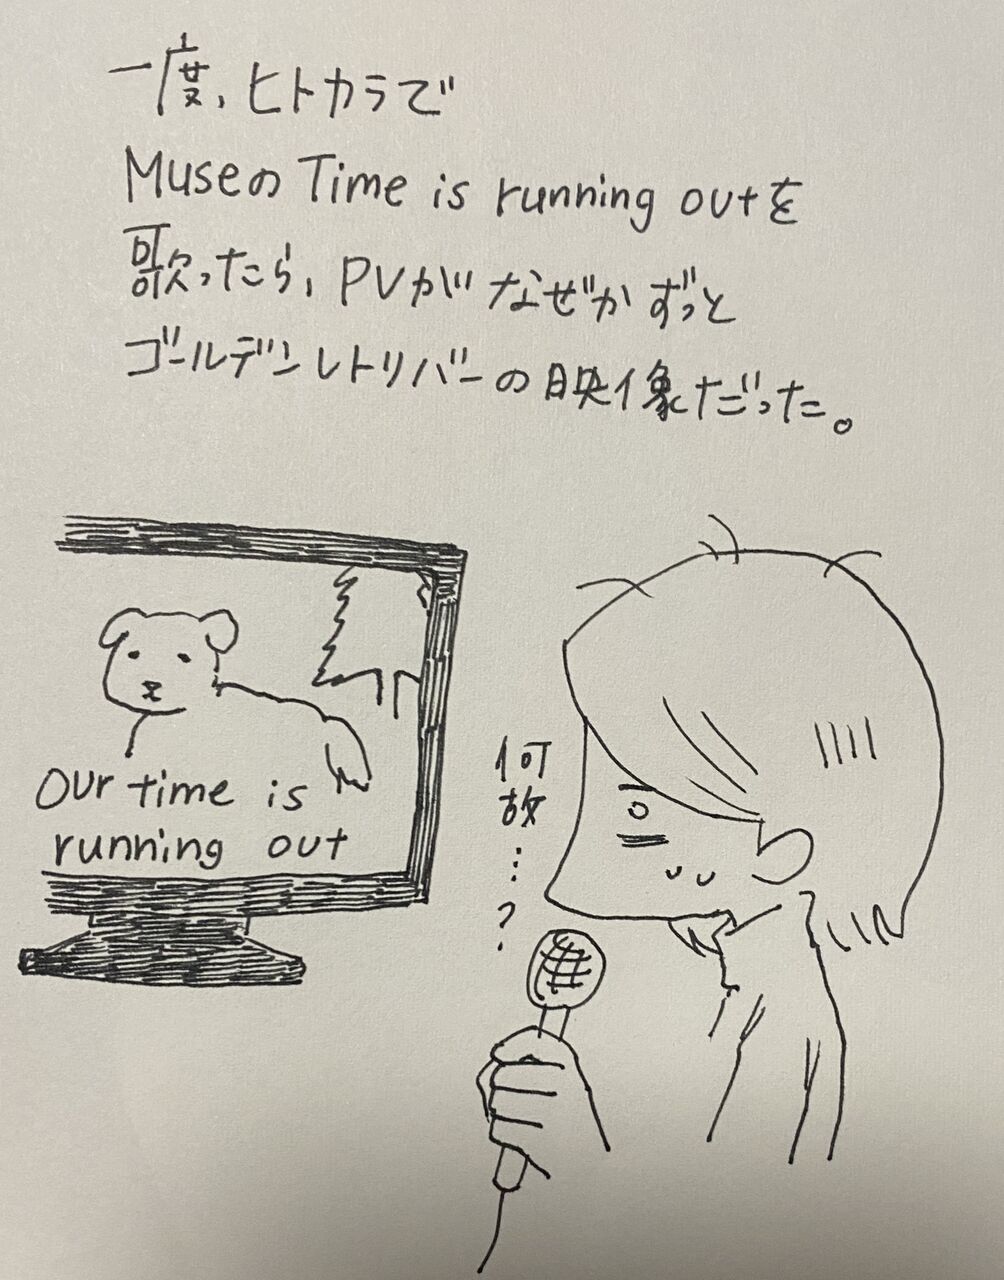 一度、ヒトカラで
MuseのTime is running outを
歌ったら、PVがなぜかずっと
ゴールデンレトリバーの映像だった。
our time is
running out
何故…?